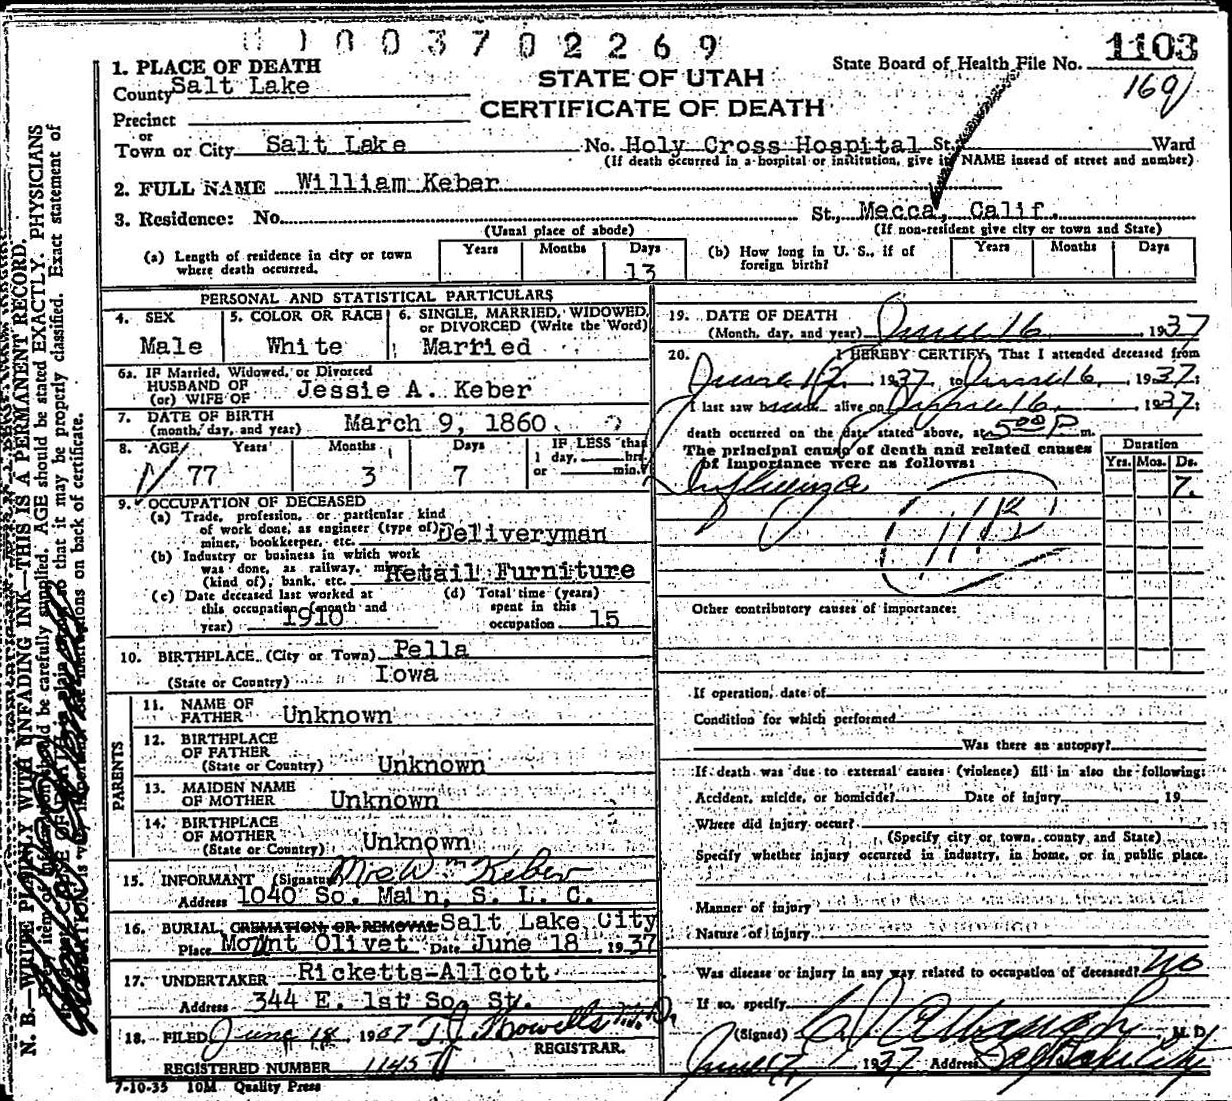 0100370 2269
1103
State Board of Health File No.
169
STATE OF UTAH
CERTIFICATE OF DEATH
1. PLACE OF DEATH
County Salt Lake
Precinct
or
Town or City Salt Lake No. Holy Cross Hospital St. Ward
(If death occurred in a hospital or institution, give its NAME instead of street and number)
2. FULL NAME William Keber
3. Residence: No. St., Mecca, Calif.
(Usual place of abode) (If non-resident give city or town and State)
(a) Length of residence in city or town where death occurred. Years Months Days 13
(b) How long in U. S., if of foreign birth? Years Months Days
PERSONAL AND STATISTICAL PARTICULARS
4. SEX Male
5. COLOR OR RACE White
6. SINGLE, MARRIED, WIDOWED, or DIVORCED (Write the Word) Married
6a. IF Married, Widowed, or Divorced
HUSBAND OF
(or) WIFE OF Jessie A. Keber
7. DATE OF BIRTH
(month, day, and year) March 9, 1860
8. AGE Years 77 Months 3 Days 7 IF LESS than 1 day, hrs. or min.
9. OCCUPATION OF DECEASED
(a) Trade, profession, or particular kind
of work done, as engineer (type of)
miner, bookkeeper, etc. Deliveryman
(b) Industry or business in which work
was done, as railway, mine
(kind of), bank, etc. Retail Furniture
(c) Date deceased last worked at
this occupation (month and
year) 1910
(d) Total time (years)
spent in this
occupation 15
10. BIRTHPLACE (City or Town) Pella
(State or Country) Iowa
PARENTS
11. NAME OF
FATHER Unknown
12. BIRTHPLACE
OF FATHER
(State or Country) Unknown
13. MAIDEN NAME
OF MOTHER Unknown
14. BIRTHPLACE
OF MOTHER
(State or Country) Unknown
15. INFORMANT (Signature) Mrs Wm Keber
Address 1040 So. Main, S. L. C.
16. BURIAL, CREMATION OR REMOVAL Salt Lake City
Place Mount Olivet Date June 18 1937
17. UNDERTAKER Ricketts-Allcott
Address 344 E. 1st So. St.
18. FILED June 18 1937 T. J. Howells M.D.
REGISTRAR.
REGISTERED NUMBER 1145
7-10-35 10M Quality Press
19. DATE OF DEATH
(Month, day, and year) June 16, 1937
20. I HEREBY CERTIFY, That I attended deceased from
June 12, 1937 to June 16, 1937;
I last saw him alive on June 16, 1937;
death occurred on the date stated above, at 5:00 P m.
The principal cause of death and related causes
of importance were as follows:
Duration
Yrs. Mos. Ds.
Influenza 7.
11B
Other contributory causes of importance:
If operation, date of
Condition for which performed
Was there an autopsy?
If death was due to external causes (violence) fill in also the following:
Accident, suicide, or homicide? Date of injury 19
Where did injury occur?
(Specify city or town, county and State)
Specify whether injury occurred in industry, in home, or in public place.
Manner of injury
Nature of injury
Was disease or injury in any way related to occupation of deceased? No
If so, specify
(Signed) M. D.
June 17, 1937 Address Salt Lake City
N. B.—WRITE PLAINLY WITH UNFADING INK—THIS IS A PERMANENT RECORD.
AGE should be stated EXACTLY. PHYSICIANS
Exact statement of